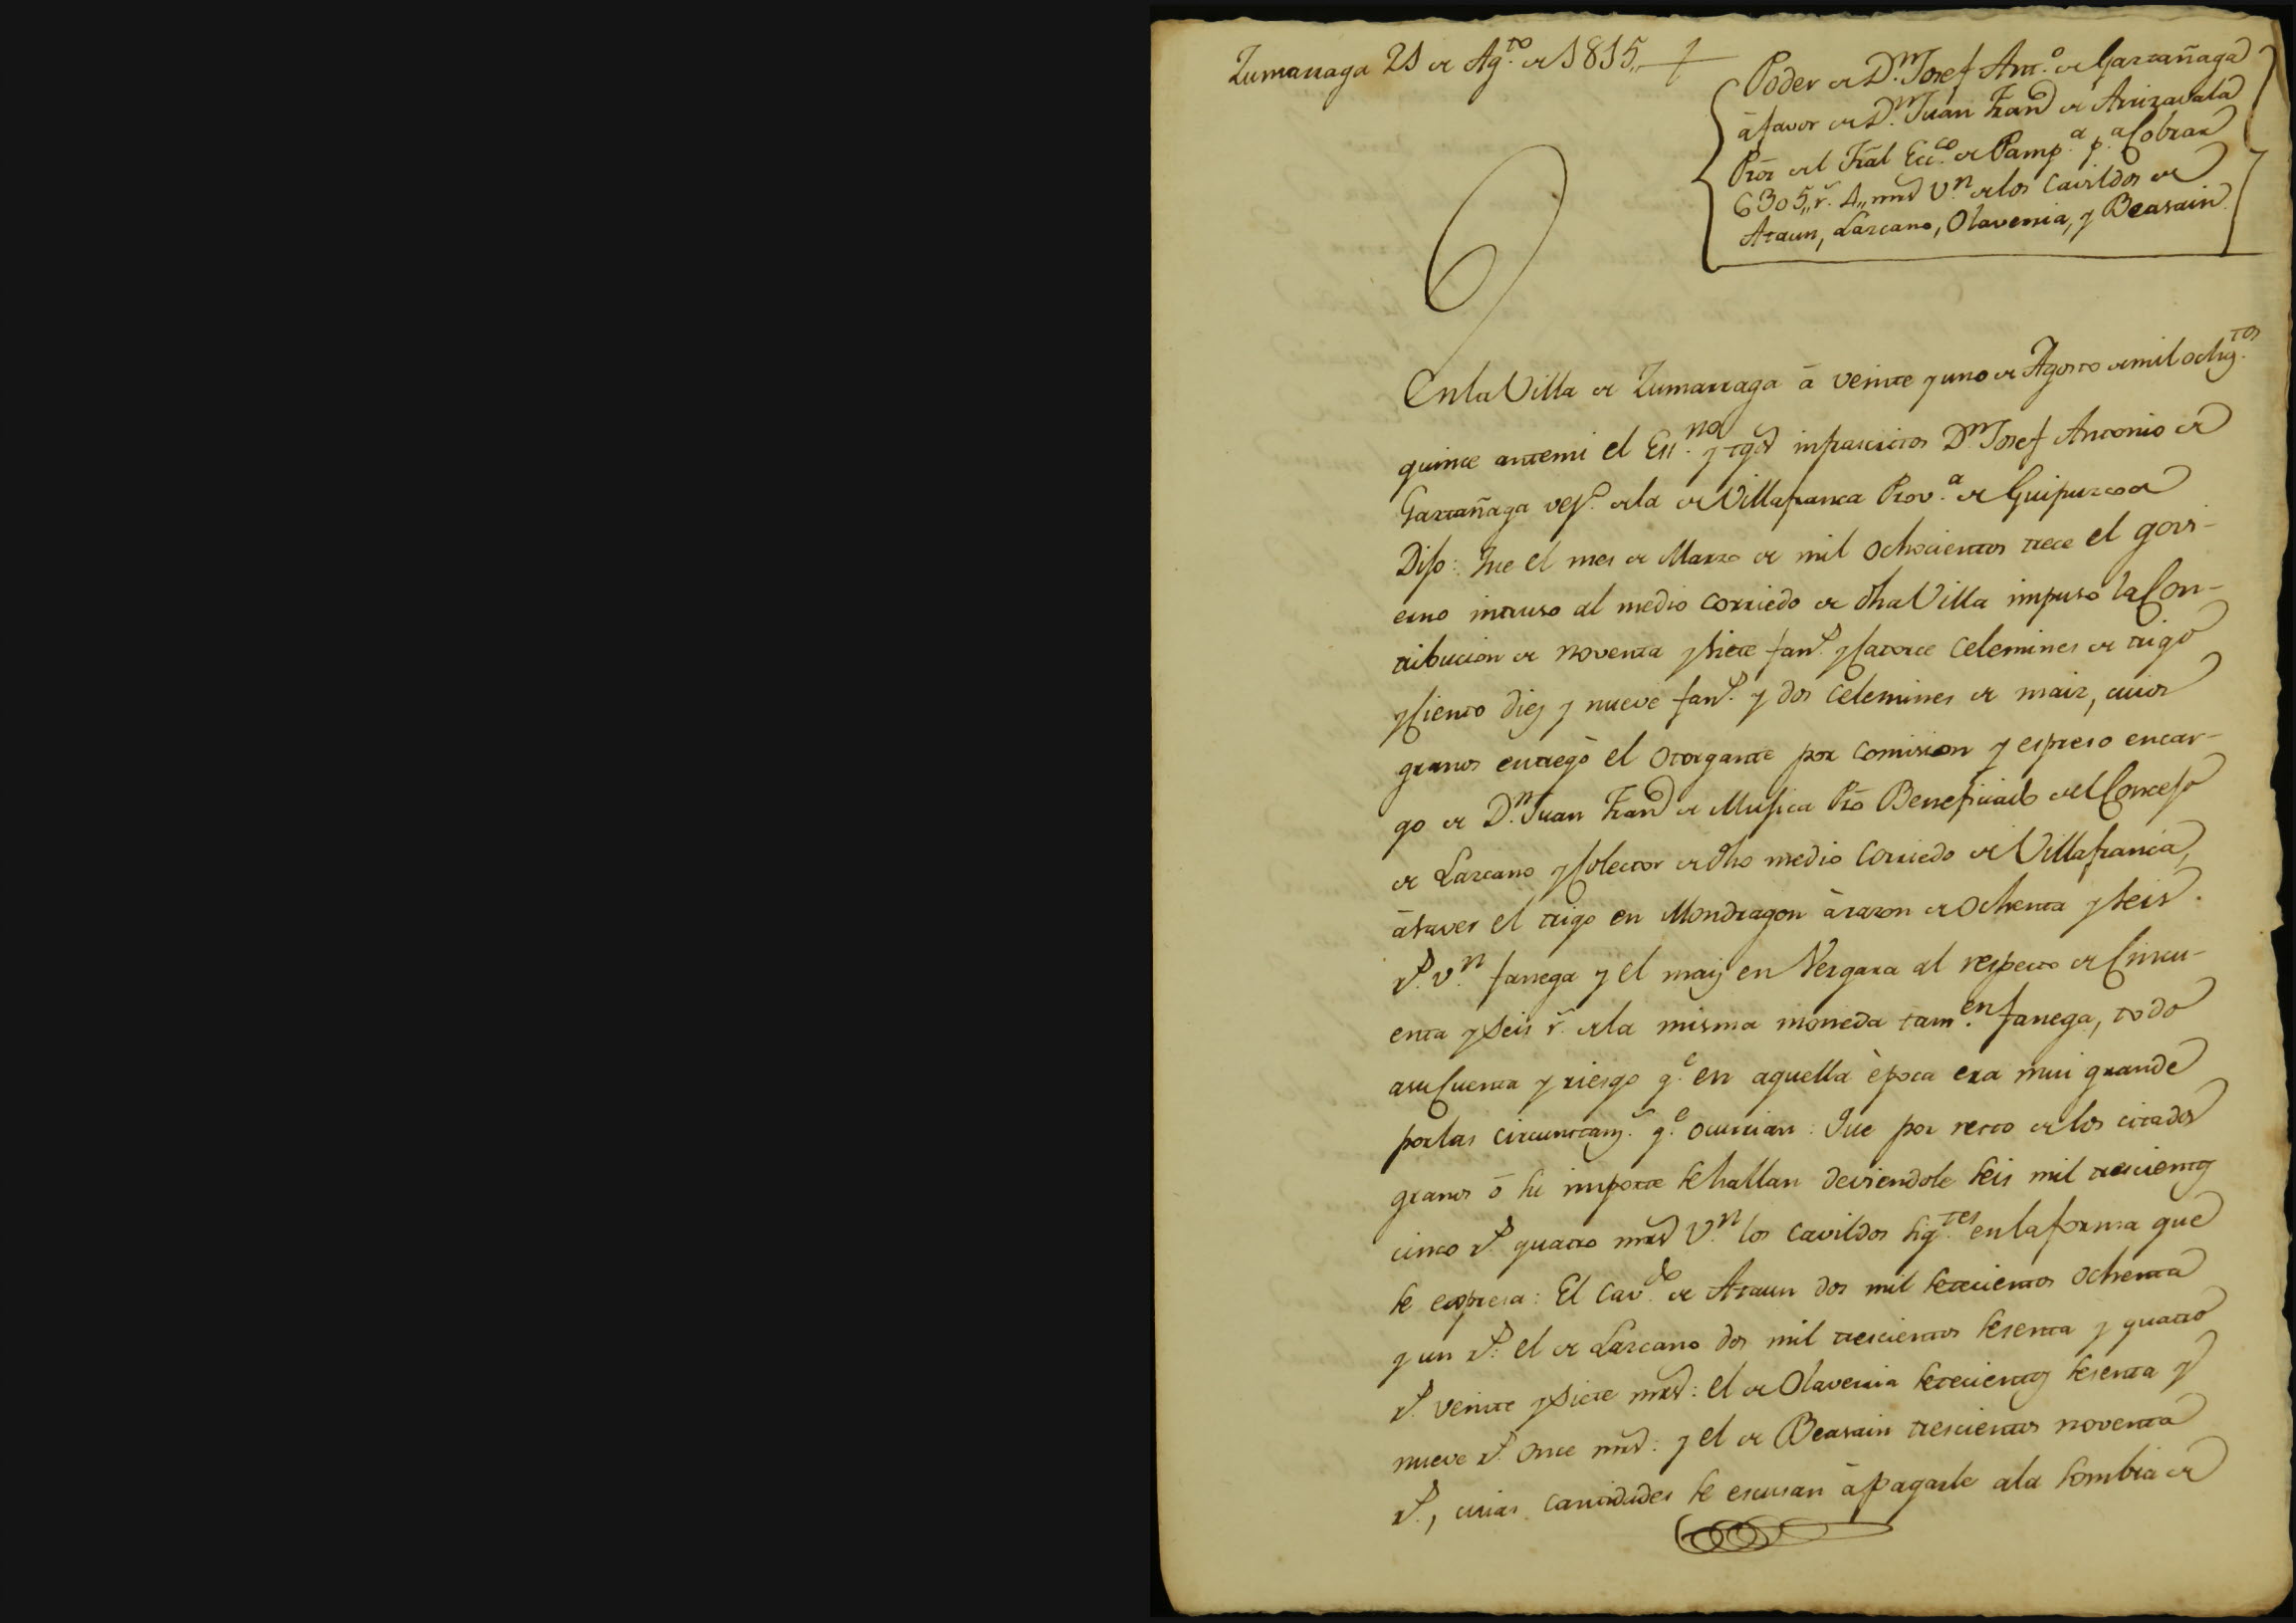 Zumarraga 21 de Ag.to de 1815,,
Poder de D.n Josef Ant.o de Garzañaga
á favor de D.n Juan Fran.co de Arrizavala
Pror del Trãl Ecc.co de Pamp.a p.a Cobrar
6305,, r.s 4,, mrs v.n de los Cavildos de
Ataun, Lazcano, Olaverria, y Beasain.
En la Villa de Zumarraga á veinte y uno de Agosto de mil ochoz.tos
quince antemi el Ess.no y tgos infrascritos D.n Josef Antonio de
Garzañaga vez.o de la de Villafranca Prov.a de Guipuzcoa
Dijo: Que el mes de Marzo de mil ochocientos trece el govi-
erno intruso al medio corriedo de dha Villa impuso la Con-
tribucion de noventa y siete fan.s y Catorce celemines de trigo
y Ciento diez y nueve fan.s y dos celemines de maiz, cuios
granos entregò el otorgante por comision y espreso encar-
go de D.n Juan Fran.co de Mujica Pro Beneficiado del Concejo
de Lazcano y Colector de dho medio Corriedo de Villafranca,
á saver el trigo en Mondragon á razon de ochenta y seis
r.s v.n fanega y el maiz en Vergara al respecto de Cincu-
enta y seis r.s de la misma moneda tam.en fanega, todo
a su Cuenta y riesgo q.e en aquella època era mui grande
por las circunstanz.s q.e ocurrian: Que por resto de los citados
granos ó su importe se hallan deviendole seis mil trescientos
cinco r.s quatro mrs v.n los cavildos sig.tes en la forma que
se expresa: El Cav.do de Ataun dos mil setecientos ochenta
y un r.s: el de Lazcano dos mil trescientos sesenta y quatro
r.s veinte y siete mrs: el de Olaverria setecientos sesenta y
nueve r.s once mrs: y el de Beasain trescientos noventa
r.s, cuias cantidades se escusan à pagarle a la sombra de